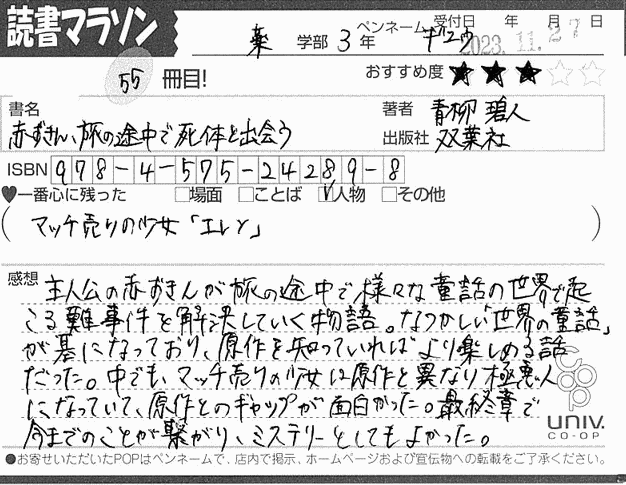 読書マラソン
受付日 年 月 日
2023.11.27
薬 学部 3 年 ペンネーム ギュウ
55 冊目! おすすめ度 ★★★☆☆
書名 赤ずきん、旅の途中で死体と出会う
著者 青柳 碧人
出版社 双葉社
ISBN 978-4-575-24289-8
♥一番心に残った □場面 □ことば ☑人物 □その他
(マッチ売りの少女「エレン」)
感想 主人公の赤ずきんが旅の途中で様々な童話の世界で起
こる難事件を解決していく物語。なつかしい「世界の童話」
が基になっており、原作を知っていればより楽しめる話
だった。中でも、マッチ売りの少女は原作と異なり極悪人
になっていて、原作とのギャップが面白かった。最終章で
今までのことが繋がり、ミステリーとしてもよかった。
coop
UNIV.
CO-OP
●お寄せいただいたPOPはペンネームで、店内で掲示、ホームページおよび宣伝物への転載をご了承ください。